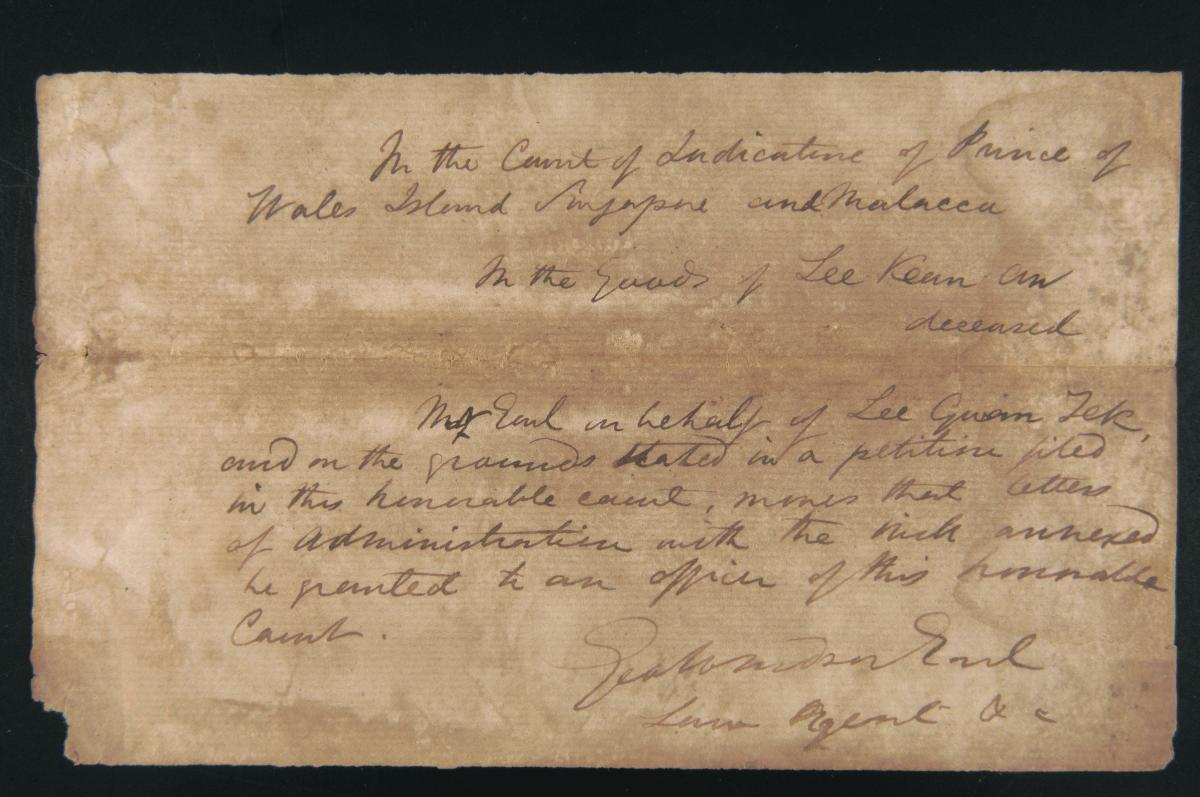 In the Court of Judicature of Prince of
Wales Island Singapore and Malacca
In the Goods of Lee Kean
deceased
Mr Earl on behalf of Lee Guan Tek,
and on the grounds stated in a petition filed
in this honorable court, moves that letters
of Administration with the will annexed
be granted to an officer of this honorable
Court.
Geo Windsor Earl
Law Agent &c